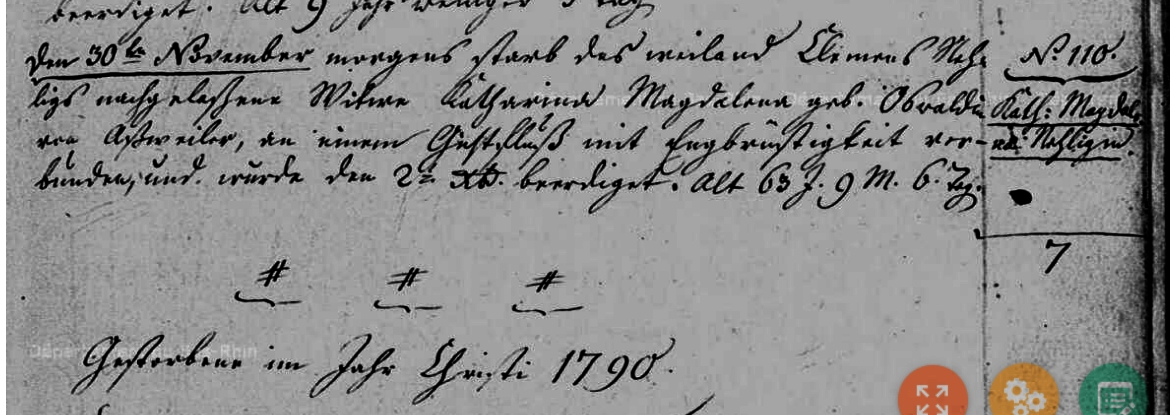 beerdiget. Alt 9 Jahr weniger 5 tag
Den 30ten November morgens starb des weiland Clemens Neh-
ligs nachgelassene Witwe Katharina Magdalena geb. Oswaldin
von Aßweiler, an einem Gustfluß mit Engbrüstigkeit ver-
bunden, und wurde den 2= Xb. beerdiget. Alt 63 J. 9 M. 6. Tag.
N° 110.
Kath: Magdal
Nehligin.
7
# # #
Gestorbene im Jahr Christi 1790.